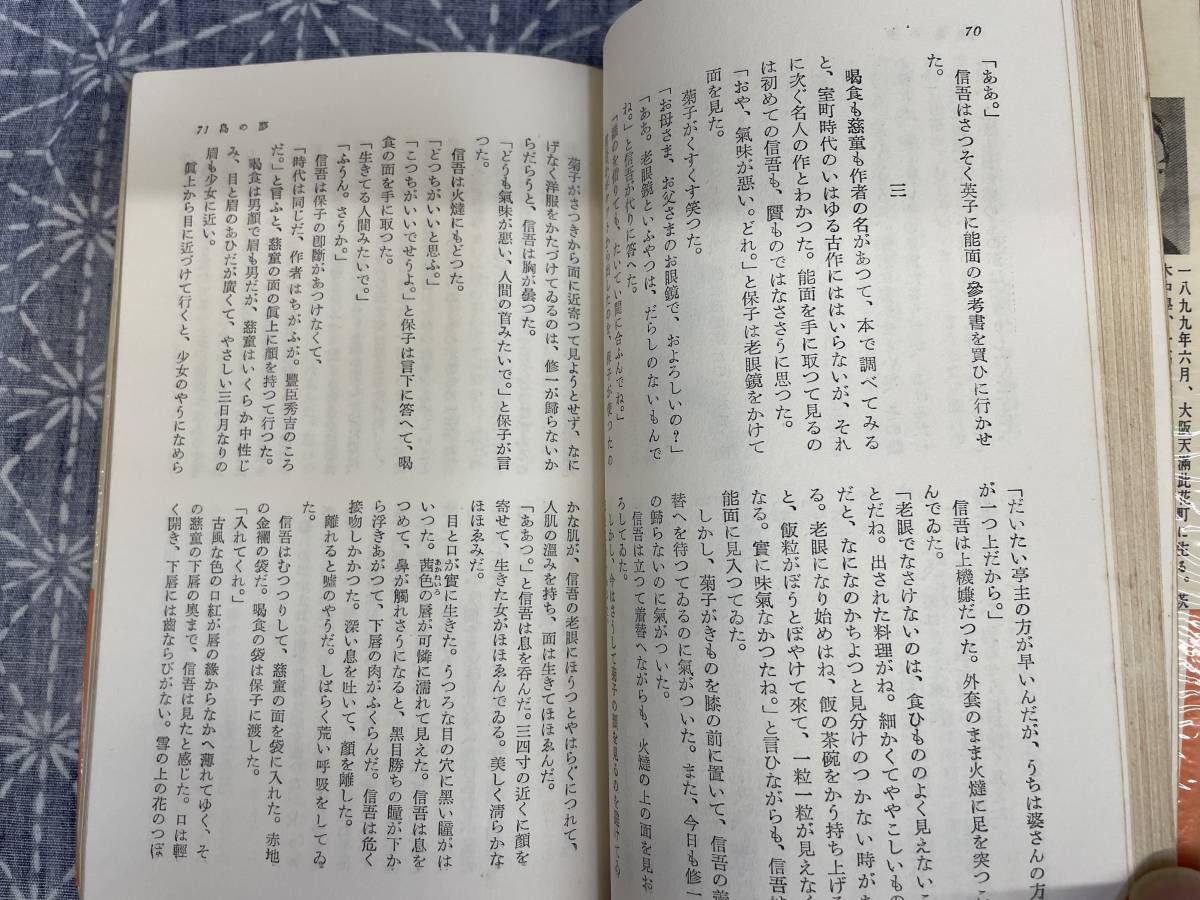 70
「ああ。」
信吾はさつそく英子に能面の參考書を買ひに行かせ
た。
三
喝食も慈童も作者の名があつて、本で調べてみる
と、室町時代のいはゆる古作にははいらないが、それ
に次ぐ名人の作とわかつた。能面を手に取つて見るの
は初めての信吾も、贋ものではなささうに思つた。
「おや、氣味が惡い。どれ。」と保子は老眼鏡をかけて
面を見た。
菊子がくすくす笑つた。
「お母さま、お父さまのお眼鏡で、およろしいの？」
「ああ。老眼鏡といふやつは、だらしのないもんで
ね。」と信吾が代りに答へた。
「誰のを借りても、たいてい間に合ふんでね。」
「だいたい亭主の方が早いんだが、うちは婆さんの方
が一つ上だから。」
信吾は上機嫌だつた。外套のまま火燵に足を突つこ
んでゐた。
「老眼でなさけないのは、食ひもののよく見えないこ
とだね。出された料理がね。細かくてややこしいもの
だと、なになのかちよつと見分けのつかない時があ
る。老眼になり始めはね、飯の茶碗をかう持ち上げる
と、飯粒がぼうとぼやけて來て、一粒一粒が見えなく
なる。實に味氣なかつたね。」と言ひながらも、信吾は
能面に見入つてゐた。
しかし、菊子がきものを膝の前に置いて、信吾の着
替へを待つてゐるのに氣がついた。また、今日も修一
の歸らないのに氣がついた。
信吾は立つて着替へながらも、火燵の上の面を見お
ろしてゐた。
71
菊子がさつきから面に近寄つて見ようとせず、なに
げなく洋服をかたづけてゐるのは、修一が歸らないか
らだらうと、信吾は胸が曇つた。
「どうも氣味が惡い、人間の首みたいで。」と保子が言
つた。
信吾は火燵にもどつた。
「どつちがいいと思ふ。」
「こつちがいいでせうよ。」と保子は言下に答へて、喝
食の面を手に取つた。
「生きてる人間みたいで。」
「ふうん。さうか。」
信吾は保子の卽斷があつけなくて、
「時代は同じだ、作者はちがふが。豐臣秀吉のころ
だ。」と言ふと、慈童の面の眞上に顏を持つて行つた。
喝食は男顏で眉も男だが、慈童はいくらか中性じ
み、目と眉のあひだが廣くて、やさしい三日月なりの
眉も少女に近い。
眞上から目に近づけて行くと、少女のやうになめら
かな肌が、信吾の老眼にほうつとやはらぐにつれて、
人肌の溫みを持ち、面は生きてほほゑんだ。
「ああつ。」と信吾は息を吞んだ。三四寸の近くに顏を
寄せて、生きた女がほほゑんでゐる。美しく淸らかな
ほほゑみだ。
目と口が實に生きた。うつろな目の穴に黑い瞳がは
いつた。茜色の唇が可憐に濡れて見えた。信吾は息を
つめて、鼻が觸れさうになると、黑目勝ちの瞳が下か
ら浮きあがつて、下唇の肉がふくらんだ。信吾は危く
接吻しかかつた。深い息を吐いて、顏を離した。
離れると噓のやうだ。しばらく荒い呼吸をしてゐ
た。
信吾はむつつりして、慈童の面を袋に入れた。赤地
の金襴の袋だ。喝食の袋は保子に渡した。
「入れてくれ。」
古風な色の口紅が唇の緣からなかへ薄れてゆく、そ
の慈童の下唇の奧まで、信吾は見たと感じた。口は輕
く開き、下唇には齒ならびがない。雪の上の花のつぼ
一八九九年六月、大阪天滿此花町に生る。茨